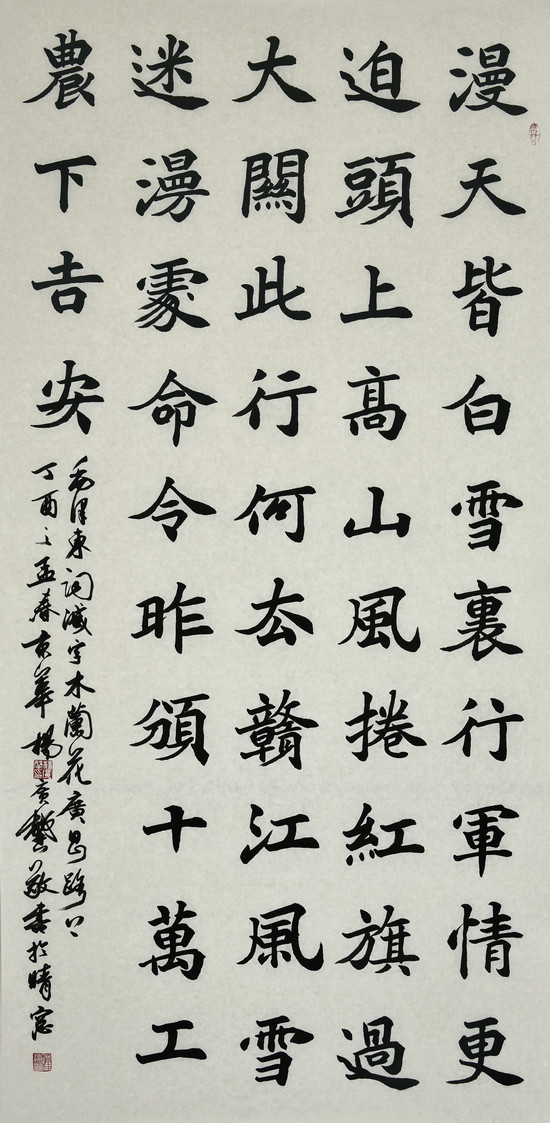 漫天皆白雪裏行軍情更
迫頭上高山風捲紅旗過
大關此行何去贛江風雪
迷漫處命令昨頒十萬工
農下吉安
毛澤東詞減字木蘭花廣昌路上
丁酉之孟春東華楊廣馨敬書於晴窗